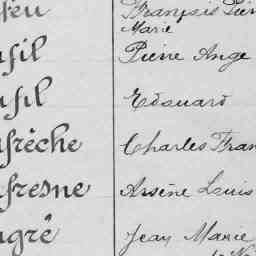 François Pier
Marie
fil Pierre Ange
fil Edouard
frèche Charles Fran
fresne Arsène Louis
ugré Jean Marie